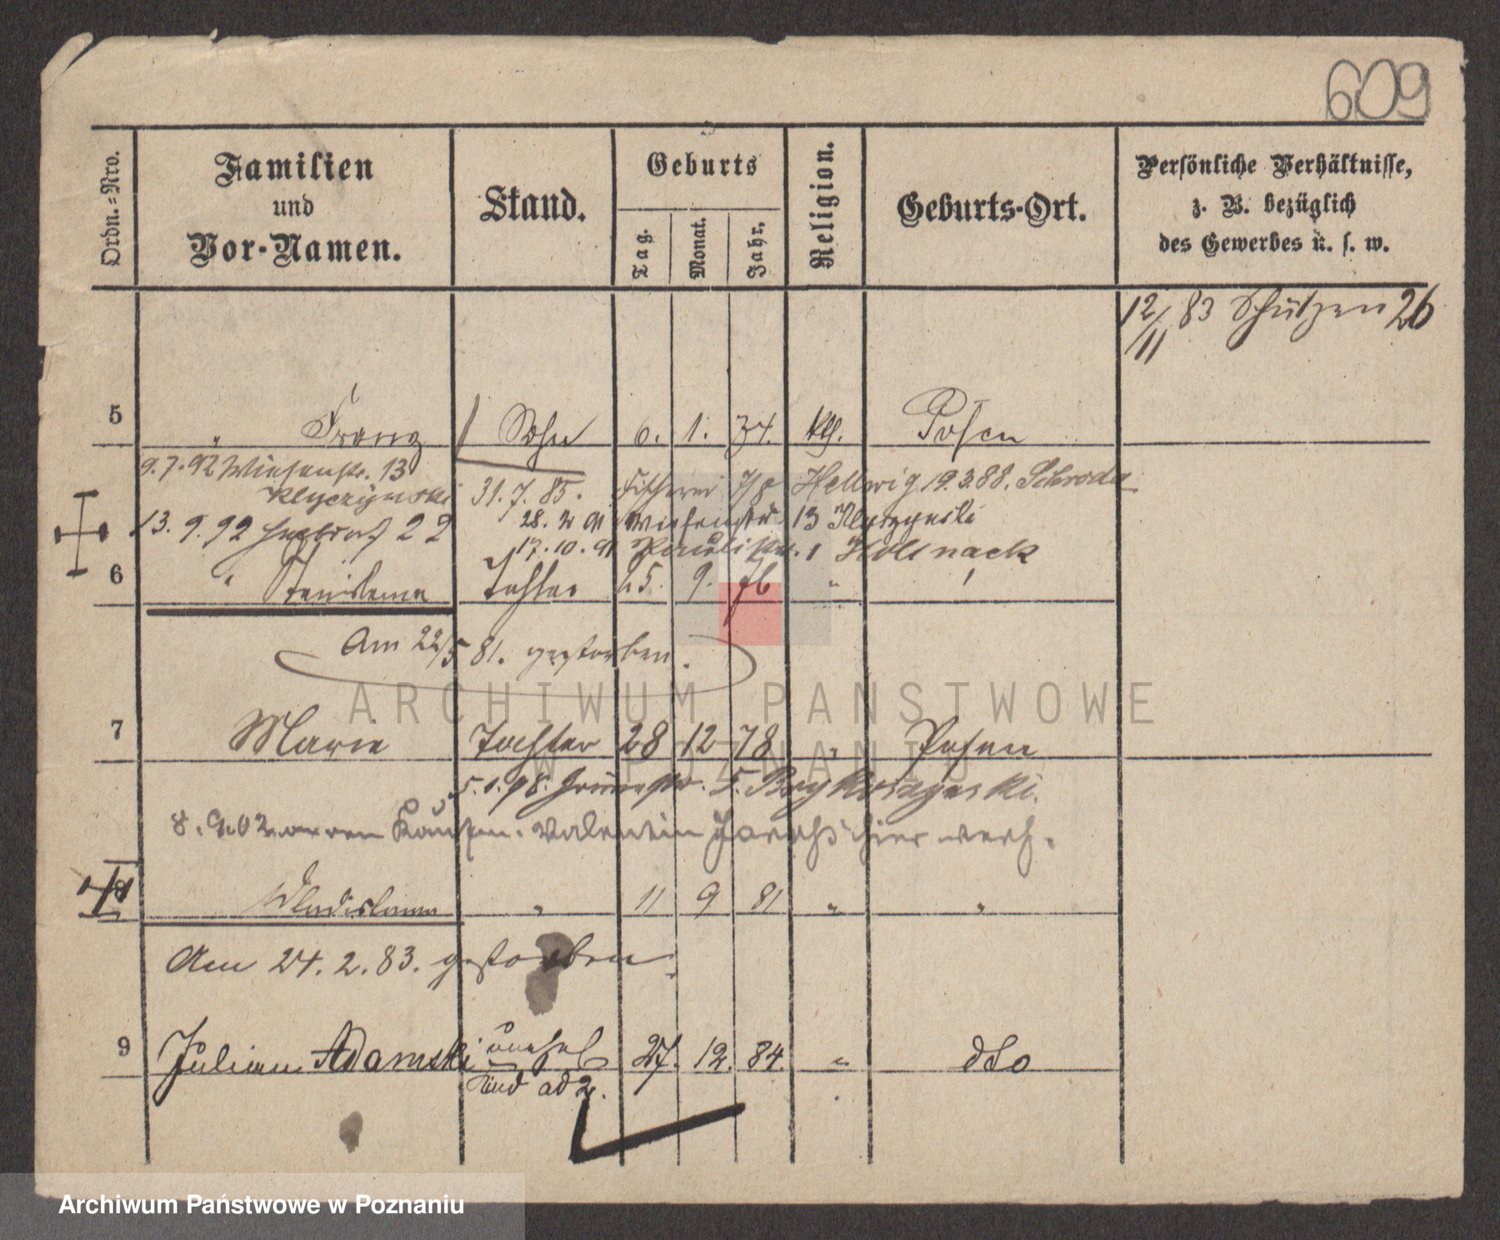 609
Ordn.=Nro.
Familien
und
Vor-Namen.
Stand.
Geburts
Tag.
Monat.
Jahr.
Religion.
Geburts-Ort.
Persönliche Verhältnisse,
z. B. bezüglich
des Gewerbes u. s. w.
12/11 83 Schützen 26
5 " Franz Sohn 6. 1. 74. kth. Posen
9.7.92 Wiesenstr. 13
31.7.85. Fischerei 7/8 Hellwig 19.3.88. Schroda
28. 2 91 Wiesenstr 13
13. 9. 92 22
17.10.91 1
6 " Tochter 25. 9. 76 "
Am 22/5 81. gestorben.
7 Marie Tochter 28 12 78 " Posen
5.1.98. 5.
8. 9.02 Valentin hier verh.
8 Wladislawa " 11 9 81 " "
Am 24. 2. 83. gestorben.
9 Julian Adamski unehel 27. 12. 84. " dto
Kind ad 2.
ARCHIWUM PAŃSTWOWE
W POZNANIU
Archiwum Państwowe w Poznaniu